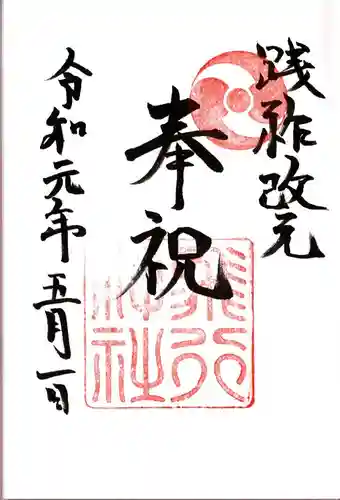 践祚改元
奉祝
令和元年五月一日
飛行
神社